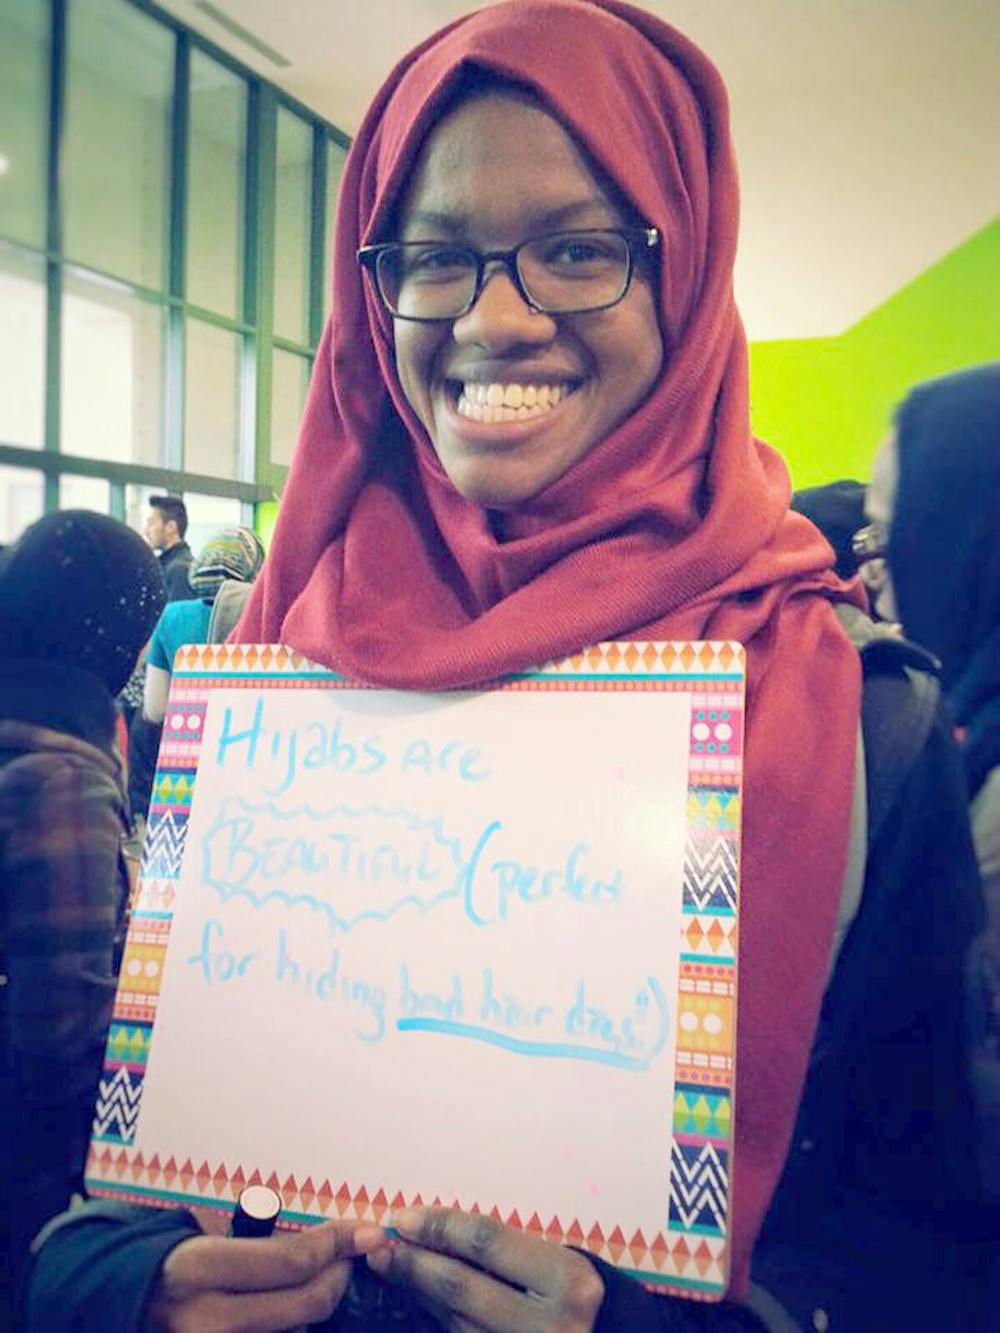 Hijabs are
BEAUTIFUL (perfect
for hiding bad hair days!!)